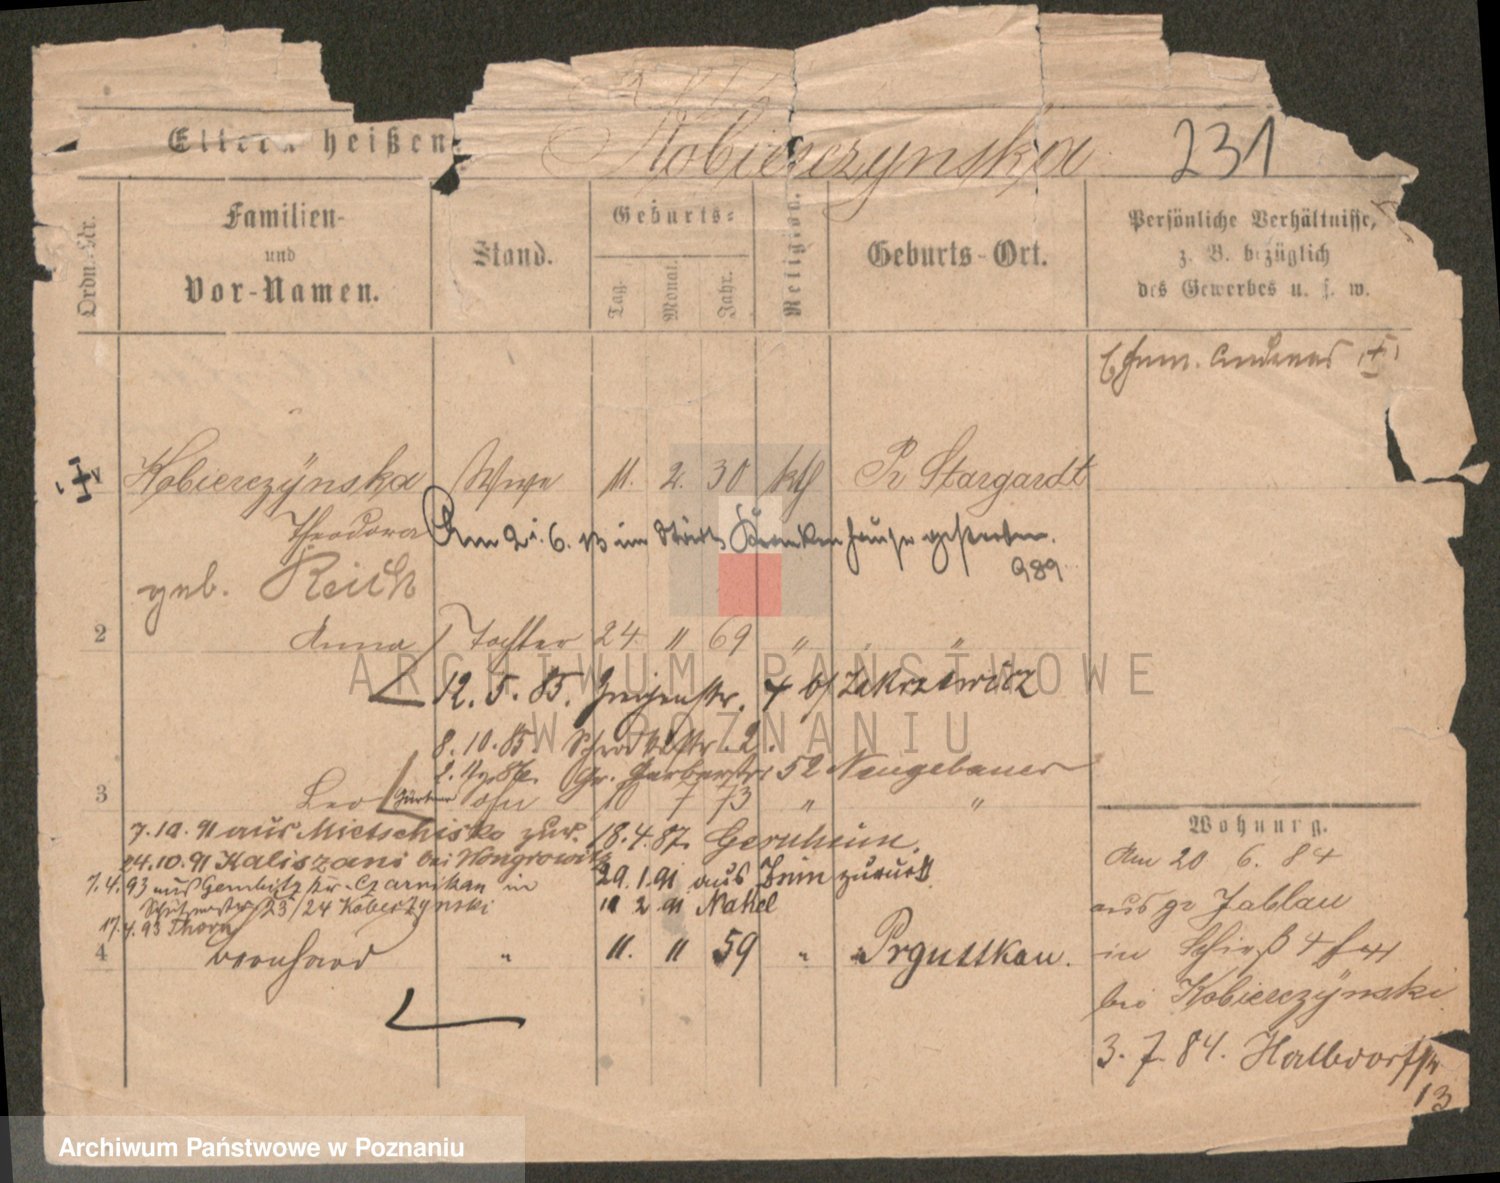 Kobierczynska 231
Eltern heißen
Ordn.-Nr.
Familien-
und
Vor-Namen.
Stand.
Geburts=
Tag.
Monat.
Jahr.
Religion.
Geburts-Ort.
Persönliche Verhältnisse,
z. B. bezüglich
des Gewerbes u. s. w.
Ehem. Andreas
Kobierczÿnska Wwe 11. 2. 30 kth Pr Stargardt
Theodora
Am 2. 6. 13 im Städt Krankenhause gestorben.
989
geb. Reich
2 Anna Tochter 24 11 69 " " "
12. 5. 85. 4 b/ Zakrzewicz
8. 10. 85 2.
Gr. Gerberstr 52 Neugebauer
3 Leo Sohn 10 7 73 " "
7.10.91 aus Mietschisko zur. 18.4.87. Gernheim.
24.10.91 Kaliszani bei Wongrowitz
29.1.91 aus Znin zurück
7.4.93 aus Gembitz Kr. Czarnikau in
23/24 Kobierzynski
11 2 91 Nakel
17.4.93 Thorn
4 Bernhard " 11. 11 59 " Prguttkau.
Wohnung.
Am 20 6. 84
aus gr Jablau
in Schieß 4
bei Kobierczÿnski
3. 7. 84. Halbdorfstr
13
ARCHIWUM PAŃSTWOWE
W POZNANIU
Archiwum Państwowe w Poznaniu